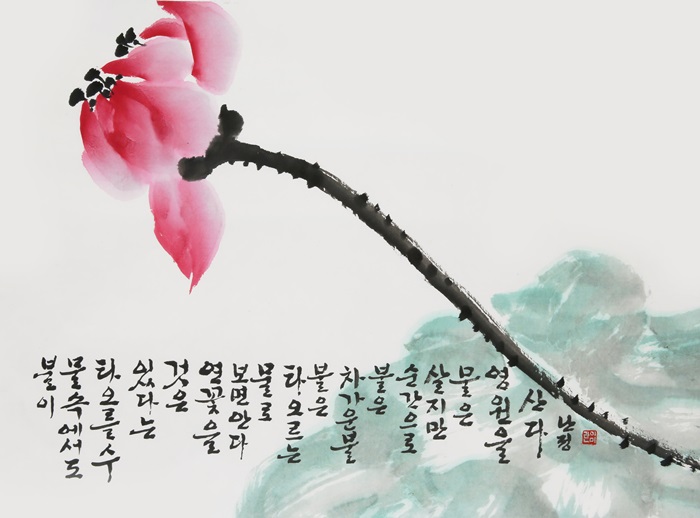 불이
물속에서도
타오를수
있다는
것은
연꽃을
보면안다
물로
타오르는
불은
차가운불
불은
순간으로
살지만
물은
영원을
산다
난정